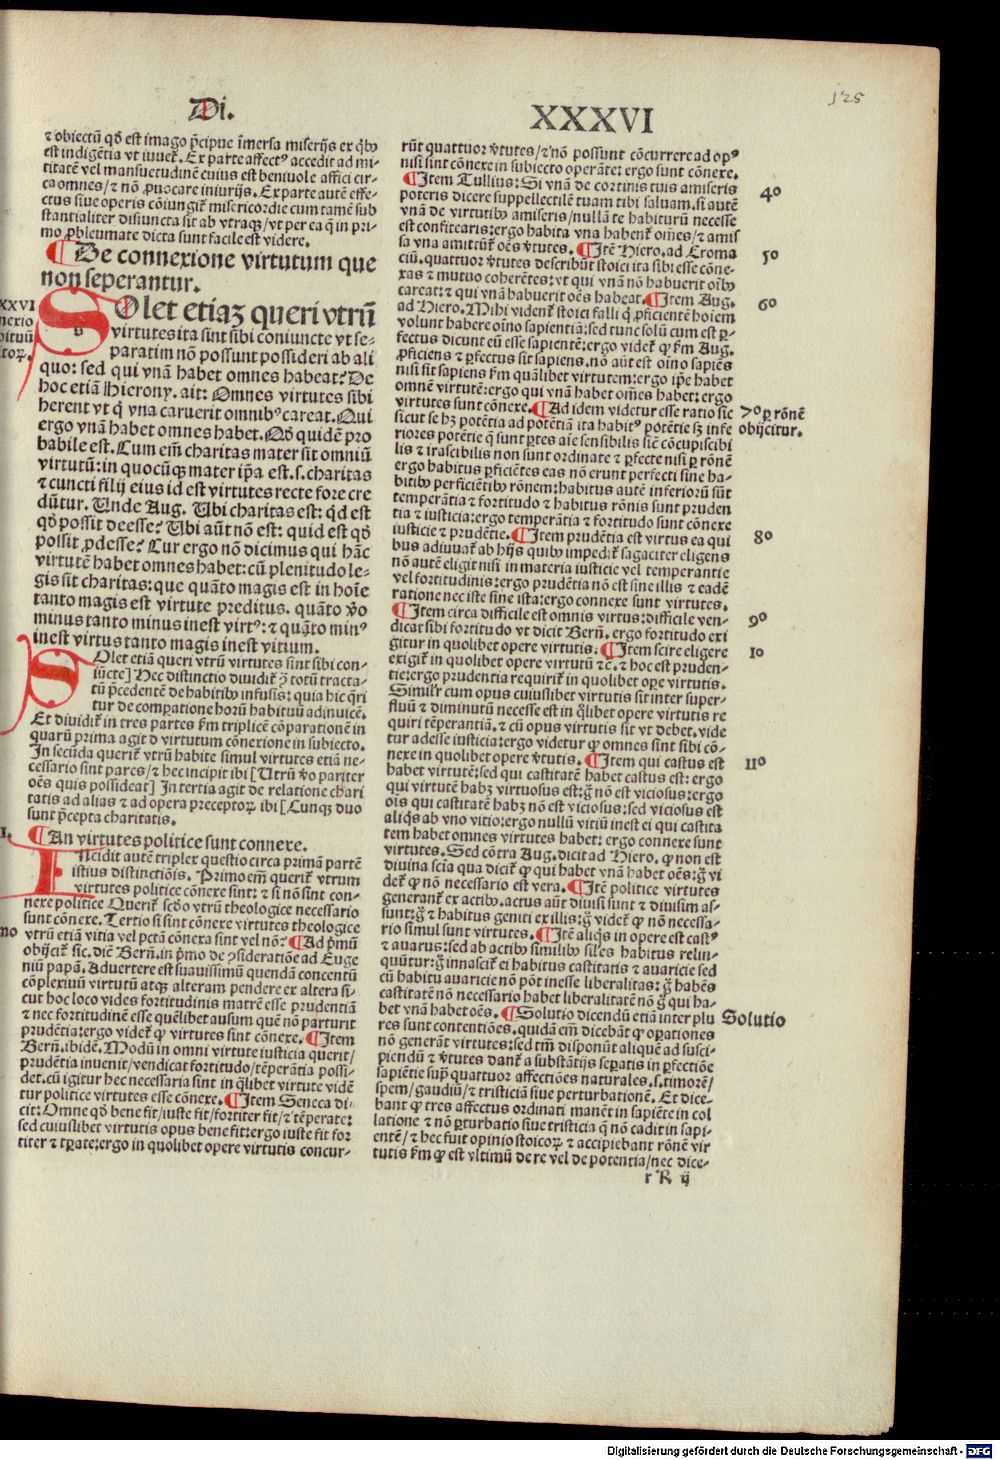 125
Di.
XXXVI
⁊ obiectū qđ est imago p̄cipue īmersa miserijs ex q̇bꝰ
est indigētia vt iuuet᷑. Ex parte affectꝰ accedit ad mi-
titatē vel mansuetudinē cuius est beniuole affici cir-
ca omnes/⁊ nō ꝓuocare iniurijs. Ex parte autē effe-
ctus siue operis cōiungit᷑ misericordie cum tamē sub
stantialiter disiuncta sīt ab vtraqꝫ/vt per ea q̄ in pri-
mo ꝓbleumate dicta sunt facile est videre.
¶ De connexione virtutum que
non seperantur.
XXVI
nexio
bituū
itoꝝ.
SOlet etiaꝫ queri vtrū
virtutes ita sint sibi coniuncte vt se-
paratim nō possunt possideri ab ali
quo: sed qui vnā habet omnes habeat? De
hoc etiā Hierony. ait: Omnes virtutes sibi
herent vt q̄ vna caruerit omnibꝰ careat. Qui
ergo vnā habet omnes habet. Qđ quidē pro
babile est. Cum em̄ charitas mater sit omniū
virtutū: in quocūqꝫ mater ip̄a est .s. charitas
⁊ cuncti filij eius id est virtutes recte fore cre
dūtur. Unde Aug. Ubi charitas est: q̇d est
qđ possit deesse? Ubi aūt nō est: quid est qđ
possit ꝓdesse? Cur ergo nō dicimus qui hāc
virtutē habet omnes habet: cū plenitudo le-
gis sit charitas: que quāto magis est in hoīe
tanto magis est virtute preditus. quāto v̄o
minus tanto minus inest virtꝰ: ⁊ quāto minꝰ
inest virtus tanto magis inest vitium.
SOlet etiā queri vtrū virtutes sint sibi con-
iūcte] Hec distinctio diuidit᷑ ꝯ̄ totū tracta-
tū p̄cedentē de habitibꝰ infusis: quia hic q̄ri
tur de compatione horū habituū adinuicē.
Et diuidit᷑ in tres partes fm̄ triplicē cōparationē in
quarū prima agit d̄ virtutum cōnexione in subiecto.
In secūda querit᷑ vtrū habite simul virtutes etiā ne-
cessario sint pares/⁊ hec incipit ibi [Utrū v̄o pariter
oēs quis possideat] In tertia agit de relatione chari
tatis ad alias ⁊ ad opera preceptoꝝ ibi [Cunqꝫ duo
sunt p̄cepta charitatis.
I.
¶ An virtutes politice sunt connexe.
INcidit autē triplex questio circa primā partē
istius distinctiōis. Primo em̄ querit᷑ vtrum
virtutes politice cōnexe sint: ⁊ si nō sint con-
nexe politice Querit᷑ sc̄do vtrū theologice necessario
sunt cōnexe. Tertio si sint cōnexe virtutes theologice
mo
vtrū etiā vitia vel pctā cōnexa sint vel nō? ¶Ad p̄mū
obijcit᷑ sic. dic̄ Bern̄. in p̄mo de ꝯsideratiōe ad Euge
niū papā. Aduertere est suauissimū quendā concentū
cōplexiuū virtutū atqꝫ alteram pendere ex altera si-
cut hoc loco vides fortitudinis matrē esse prudentiā
⁊ nec fortitudinē esse quēlibet ausum quē nō parturit
prudētia: ergo videt᷑ ꝙ virtutes sint cōnexe. ¶Item
Bern̄. ibidē. Modū in omni virtute iusticia querit/
prudētia inuenit/vendicat fortitudo/tēperātia possi-
det. cū igitur hec necessaria sint in q̄libet virtute vidē
tur politice virtutes esse cōnexe. ¶Item Seneca di-
cit: Omne qđ bene fit/iuste fit/fortiter fit/⁊ tēperate:
sed cuiuslibet virtutis opus bene fit: ergo iuste fit for
titer ⁊ tꝑate: ergo in quolibet opere virtutis concur-
rūt quattuor v̄tutes/⁊ nō possunt cōcurrere ad opꝰ
nisi sint cōnexe in subiecto operāte: ergo sunt cōnexe.
¶Item Tullius: Si vnā de cortinis tuis amiseris
4o
poteris dicere suppellectilē tuam tibi saluam. si autē
vnā de virtutibꝰ amiseris/nullā te habiturū necesse
est confitearis: ergo habita vna habent᷑ om̄es/⁊ amis
sa vna amittūt᷑ oēs v̄tutes. ¶Itē Hiero. ad Eroma
5o
ciū. quattuor v̄tutes describūt stoici ita sibi esse cōne-
xas ⁊ mutuo coherētes: vt qui vnā nō habuerit oībꝰ
careat: ⁊ qui vnā habuerit oēs habeat. ¶Item Aug.
6o
ad Hiero. Mihi vident᷑ stoici falli q̇ ꝓficientē hoīem
volunt habere oīno sapientiā: sed tunc solū cum est ꝑ-
fectus dicunt eū esse sapientē: ergo videt᷑ ꝙ fm̄ Aug.
ꝓficiens ⁊ ꝑfectus sit sapiens. nō aūt est oīno sapiēs
nisi sit sapiens fm̄ quālibet virtutem: ergo ip̄e habet
omnē virtutē: ergo qui vnā habet om̄es habet: ergo
virtutes sunt cōnexe. ¶Ad idem videtur esse ratio sic
7o ꝑ rōnē
obijcitur.
sicut se hꝫ potētia ad potētiā ita habitꝰ potētie sꝫ infe
riores potētie q̄ sunt ꝑtes aīe sensibilis sic̄ cōcupiscibi
lis ⁊ irascibilis non sunt ordinate ⁊ ꝑfecte nisi ꝑ rōnē
ergo habitus ꝑficiētes eas nō erunt perfecti sine ha-
bitibꝰ perficiētibꝰ rōnem: habitus autē inferiorū sūt
temperātia ⁊ fortitudo ⁊ habitus rōnis sunt pruden
tia ⁊ iusticia: ergo temperātia ⁊ fortitudo sunt cōnexe
iusticie ⁊ prudētie. ¶Item prudētia est virtus ea qui
8o
bus adiuuat᷑ ab hijs quibꝰ impedit᷑ sagaciter eligens
nō autē eligit nisi in materia iusticie vel temperantie
vel fortitudinis: ergo prudētia nō est sine illis ⁊ eadē
ratione nec iste sine ista: ergo connexe sunt virtutes.
¶Item circa difficile est omnis virtus: difficile ven-
9o
dicat sibi fortitudo vt dicit Bern̄. ergo fortitudo exi
gitur in quolibet opere virtutis. ¶Item scire eligere
1o
exigit᷑ in quolibet opere virtutū ⁊c̄. ⁊ hoc est pruden-
tie: ergo prudentia requirit᷑ in quolibet oꝑe virtutis.
Simil'r cum opus cuiuslibet virtutis sit inter super-
fluū ⁊ diminutū necesse est in q̄libet opere virtutis re
quiri tēperantiā. ⁊ cū opus virtutis sit vt debet. vide
tur adesse iusticia: ergo videtur ꝙ omnes sint sibi cō-
nexe in quolibet opere v̄tutis. ¶Item qui castus est
11o
habet virtutē: sed qui castitatē habet castus est: ergo
qui virtutē habꝫ virtuosus est: g̊ nō est viciosus: ergo
oīs qui castitatē habꝫ nō est viciosus: sed viciosus est
aliq̇s ab vno vitio: ergo nullū vitiū inest ei qui castita
tem habet omnes virtutes habet: ergo connexe sunt
virtutes. Sed cōtra Aug. dicit ad Hiero. ꝙ non est
diuina scīa qua dicit᷑ ꝙ qui habet vnā habet oēs: g̊ vi
det᷑ ꝙ nō necessario est vera. ¶Itē politice virtutes
generant᷑ ex actibꝰ. actus aūt diuisi sunt ⁊ diuisim as-
sunt: g̊ ⁊ habitus geniti ex illis: g̊ videt᷑ ꝙ nō necessa-
rio simul sunt virtutes. ¶Itē aliq̇s in opere est castꝰ
⁊ auarus: sed ab actibꝰ similibꝰ sil'es habitus relin-
quūtur: g̊ innascit᷑ ei habitus castitatis ⁊ auaricie sed
cū habitu auaricie nō pōt inesse liberalitas: g̊ habēs
castitatē nō necessario habet liberalitatē nō g̊ qui ha-
bet vnā habet oēs. ¶Solutio dicendū etiā inter plu
Solutio
res sunt contentiōes. quidā em̄ dicebāt ꝙ operationes
nō generāt virtutes: sed tm̄ disponūt aliquē ad susci-
piendū ⁊ v̄tutes dant᷑ a substātijs seꝑatis in ꝑfectiōe
sapiētie sup̄ quattuor affectiōes naturales .s. timorē/
spem/gaudiū/⁊ tristiciā siue perturbationē. Et dice-
bant ꝙ tres affectus ordinati manēt in sapiēte in col
latione ⁊ nō ꝑturbatio siue tristicia q̄ nō cadit in sapi-
entē/⁊ hec fuit opinio stoicoꝝ ⁊ accipiebant rōnē vir
tutis fm̄ ꝙ est vltimū de re vel de potentia/nec dice-
r R ij
Digitalisierung gefördert durch die Deutsche Forschungsgemeinschaft - DFG